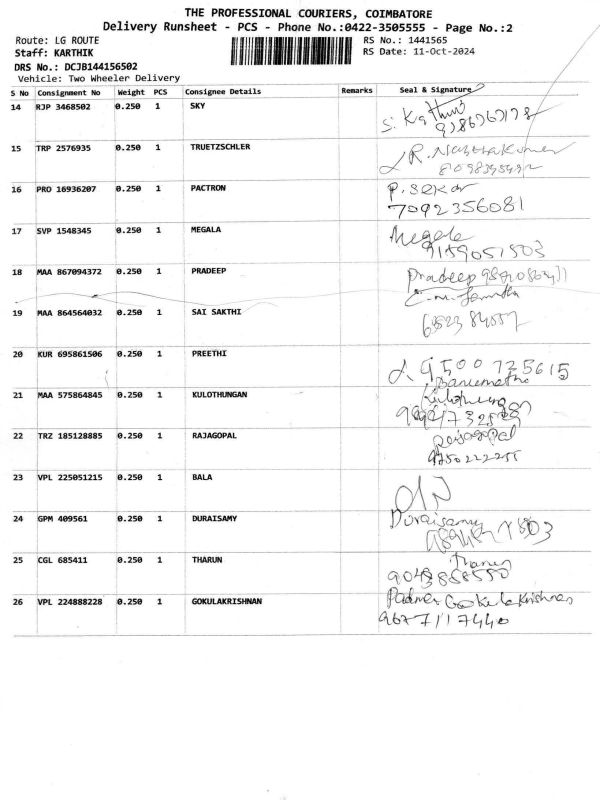 THE PROFESSIONAL COURIERS, COIMBATORE
Delivery Runsheet - PCS - Phone No.:0422-3505555 - Page No.:2
Route: LG ROUTE
RS No.: 1441565
Staff: KARTHIK
RS Date: 11-Oct-2024
DRS No.: DCJB144156502
Vehicle: Two Wheeler Delivery
S No Consignment No Weight PCS Consignee Details Remarks Seal & Signature
14 RJP 3468502 0.250 1 SKY
S. Kathir
15 TRP 2576935 0.250 1 TRUETZSCHLER
16 PRO 16936207 0.250 1 PACTRON
P. Sekar
7092356081
17 SVP 1548345 0.250 1 MEGALA
Megala
9159051503
18 MAA 867094372 0.250 1 PRADEEP
Pradeep
19 MAA 864564032 0.250 1 SAI SAKTHI
20 KUR 695861506 0.250 1 PREETHI
9500725615
21 MAA 575864845 0.250 1 KULOTHUNGAN
22 TRZ 185128885 0.250 1 RAJAGOPAL
9750222255
23 VPL 225051215 0.250 1 BALA
24 GPM 409561 0.250 1 DURAISAMY
Duraisamy
25 CGL 685411 0.250 1 THARUN
Tharun
26 VPL 224888228 0.250 1 GOKULAKRISHNAN
9677117440